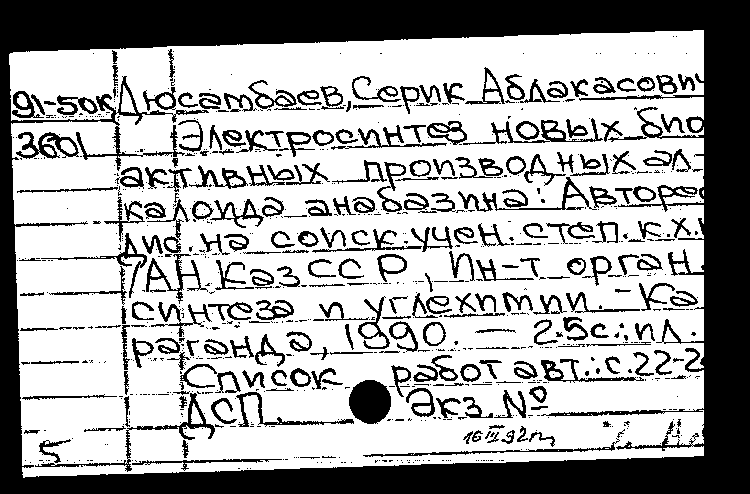 91-50к Дюсамбаев, Серик Аблакасович
3601 Электросинтез новых био
активных производных ал-
калоида анабазина: Авторе
дис. на соиск. учен. степ. к.х.н
/АН КазССР, Ин-т орган.
синтеза и углехимии. - Ка
раганда, 1990. — 25с.: ил.
Список работ авт.: с.22-2
ДСП. Экз. №
5 16 III 92г.